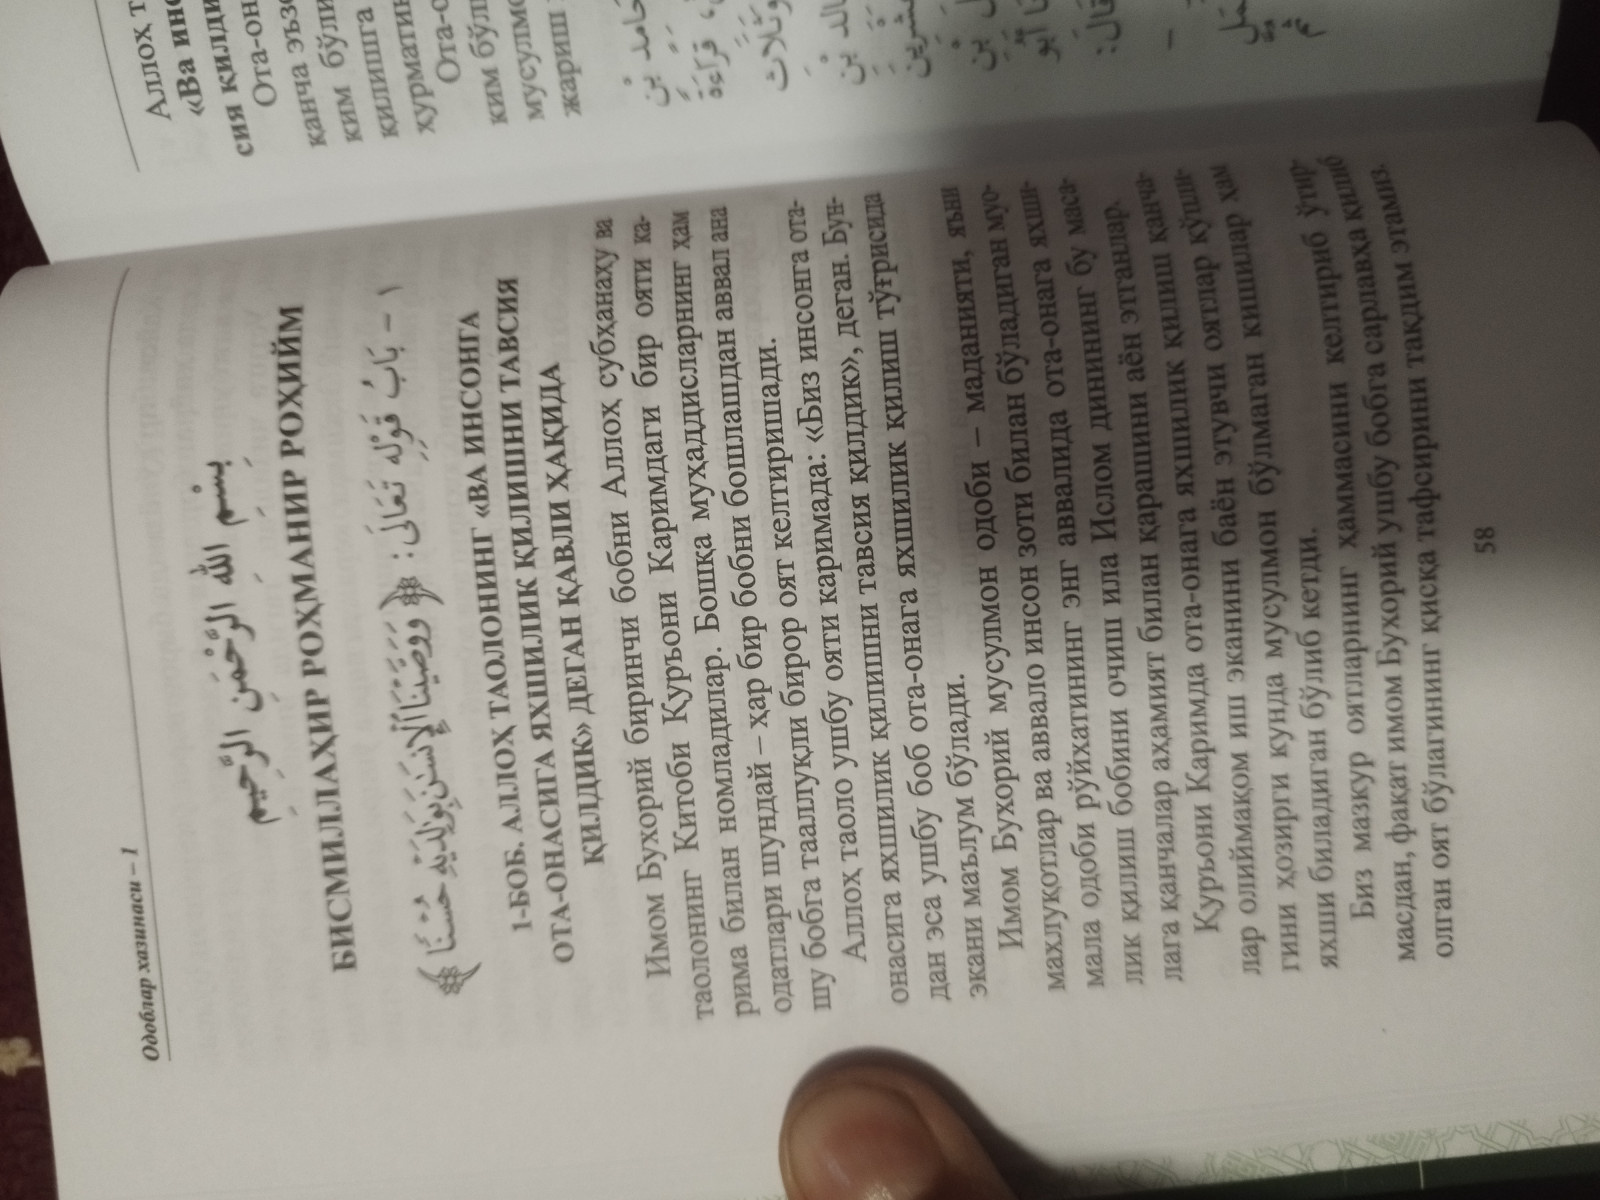 Одоблар хазинаси – 1
بِسْمِ اللهِ الرَّحْمَنِ الرَّحِيمِ
БИСМИЛЛАҲИР РОҲМАНИР РОҲИЙМ
١ - بَابُ قَوْلِهِ تَعَالَى: ﴿وَوَصَّيْنَا ٱلْإِنسَٰنَ بِوَٰلِدَيْهِ حُسْنًا﴾
1-БОБ. АЛЛОҲ ТАОЛОНИНГ «ВА ИНСОНГА
ОТА-ОНАСИГА ЯХШИЛИК ҚИЛИШНИ ТАВСИЯ
ҚИЛДИК» ДЕГАН ҚАВЛИ ҲАҚИДА
Имом Бухорий биринчи бобни Аллоҳ субҳанаҳу ва
таолонинг Китоби Қуръони Каримдаги бир ояти ка-
рима билан номладилар. Бошқа муҳаддисларнинг ҳам
одатлари шундай – ҳар бир бобни бошлашдан аввал ана
шу бобга тааллуқли бирор оят келтиришади.
Аллоҳ таоло ушбу ояти каримада: «Биз инсонга ота-
онасига яхшилик қилишни тавсия қилдик», деган. Бун-
дан эса ушбу боб ота-онага яхшилик қилиш тўғрисида
экани маълум бўлади.
Имом Бухорий мусулмон одоби – маданияти, яъни
махлуқотлар ва аввало инсон зоти билан бўладиган муо-
мала одоби рўйхатининг энг аввалида ота-онага яхши-
лик қилиш бобини очиш ила Ислом динининг бу маса-
лага қанчалар аҳамият билан қарашини аён этганлар.
Қуръони Каримда ота-онага яхшилик қилиш қанча-
лар олиймақом иш эканини баён этувчи оятлар кўпли-
гини ҳозирги кунда мусулмон бўлмаган кишилар ҳам
яхши биладиган бўлиб кетди.
Биз мазкур оятларнинг ҳаммасини келтириб ўтир-
масдан, фақат имом Бухорий ушбу бобга сарлавҳа қилиб
олган оят бўлагининг қисқа тафсирини тақдим этамиз.
58
Аллоҳ т
«Ва инс
сия қилди
Ота-он
қанча эъзо
ким бўли
қилишга
ҳурматин
Ота-о
ким бўл
мусулмо
жариш